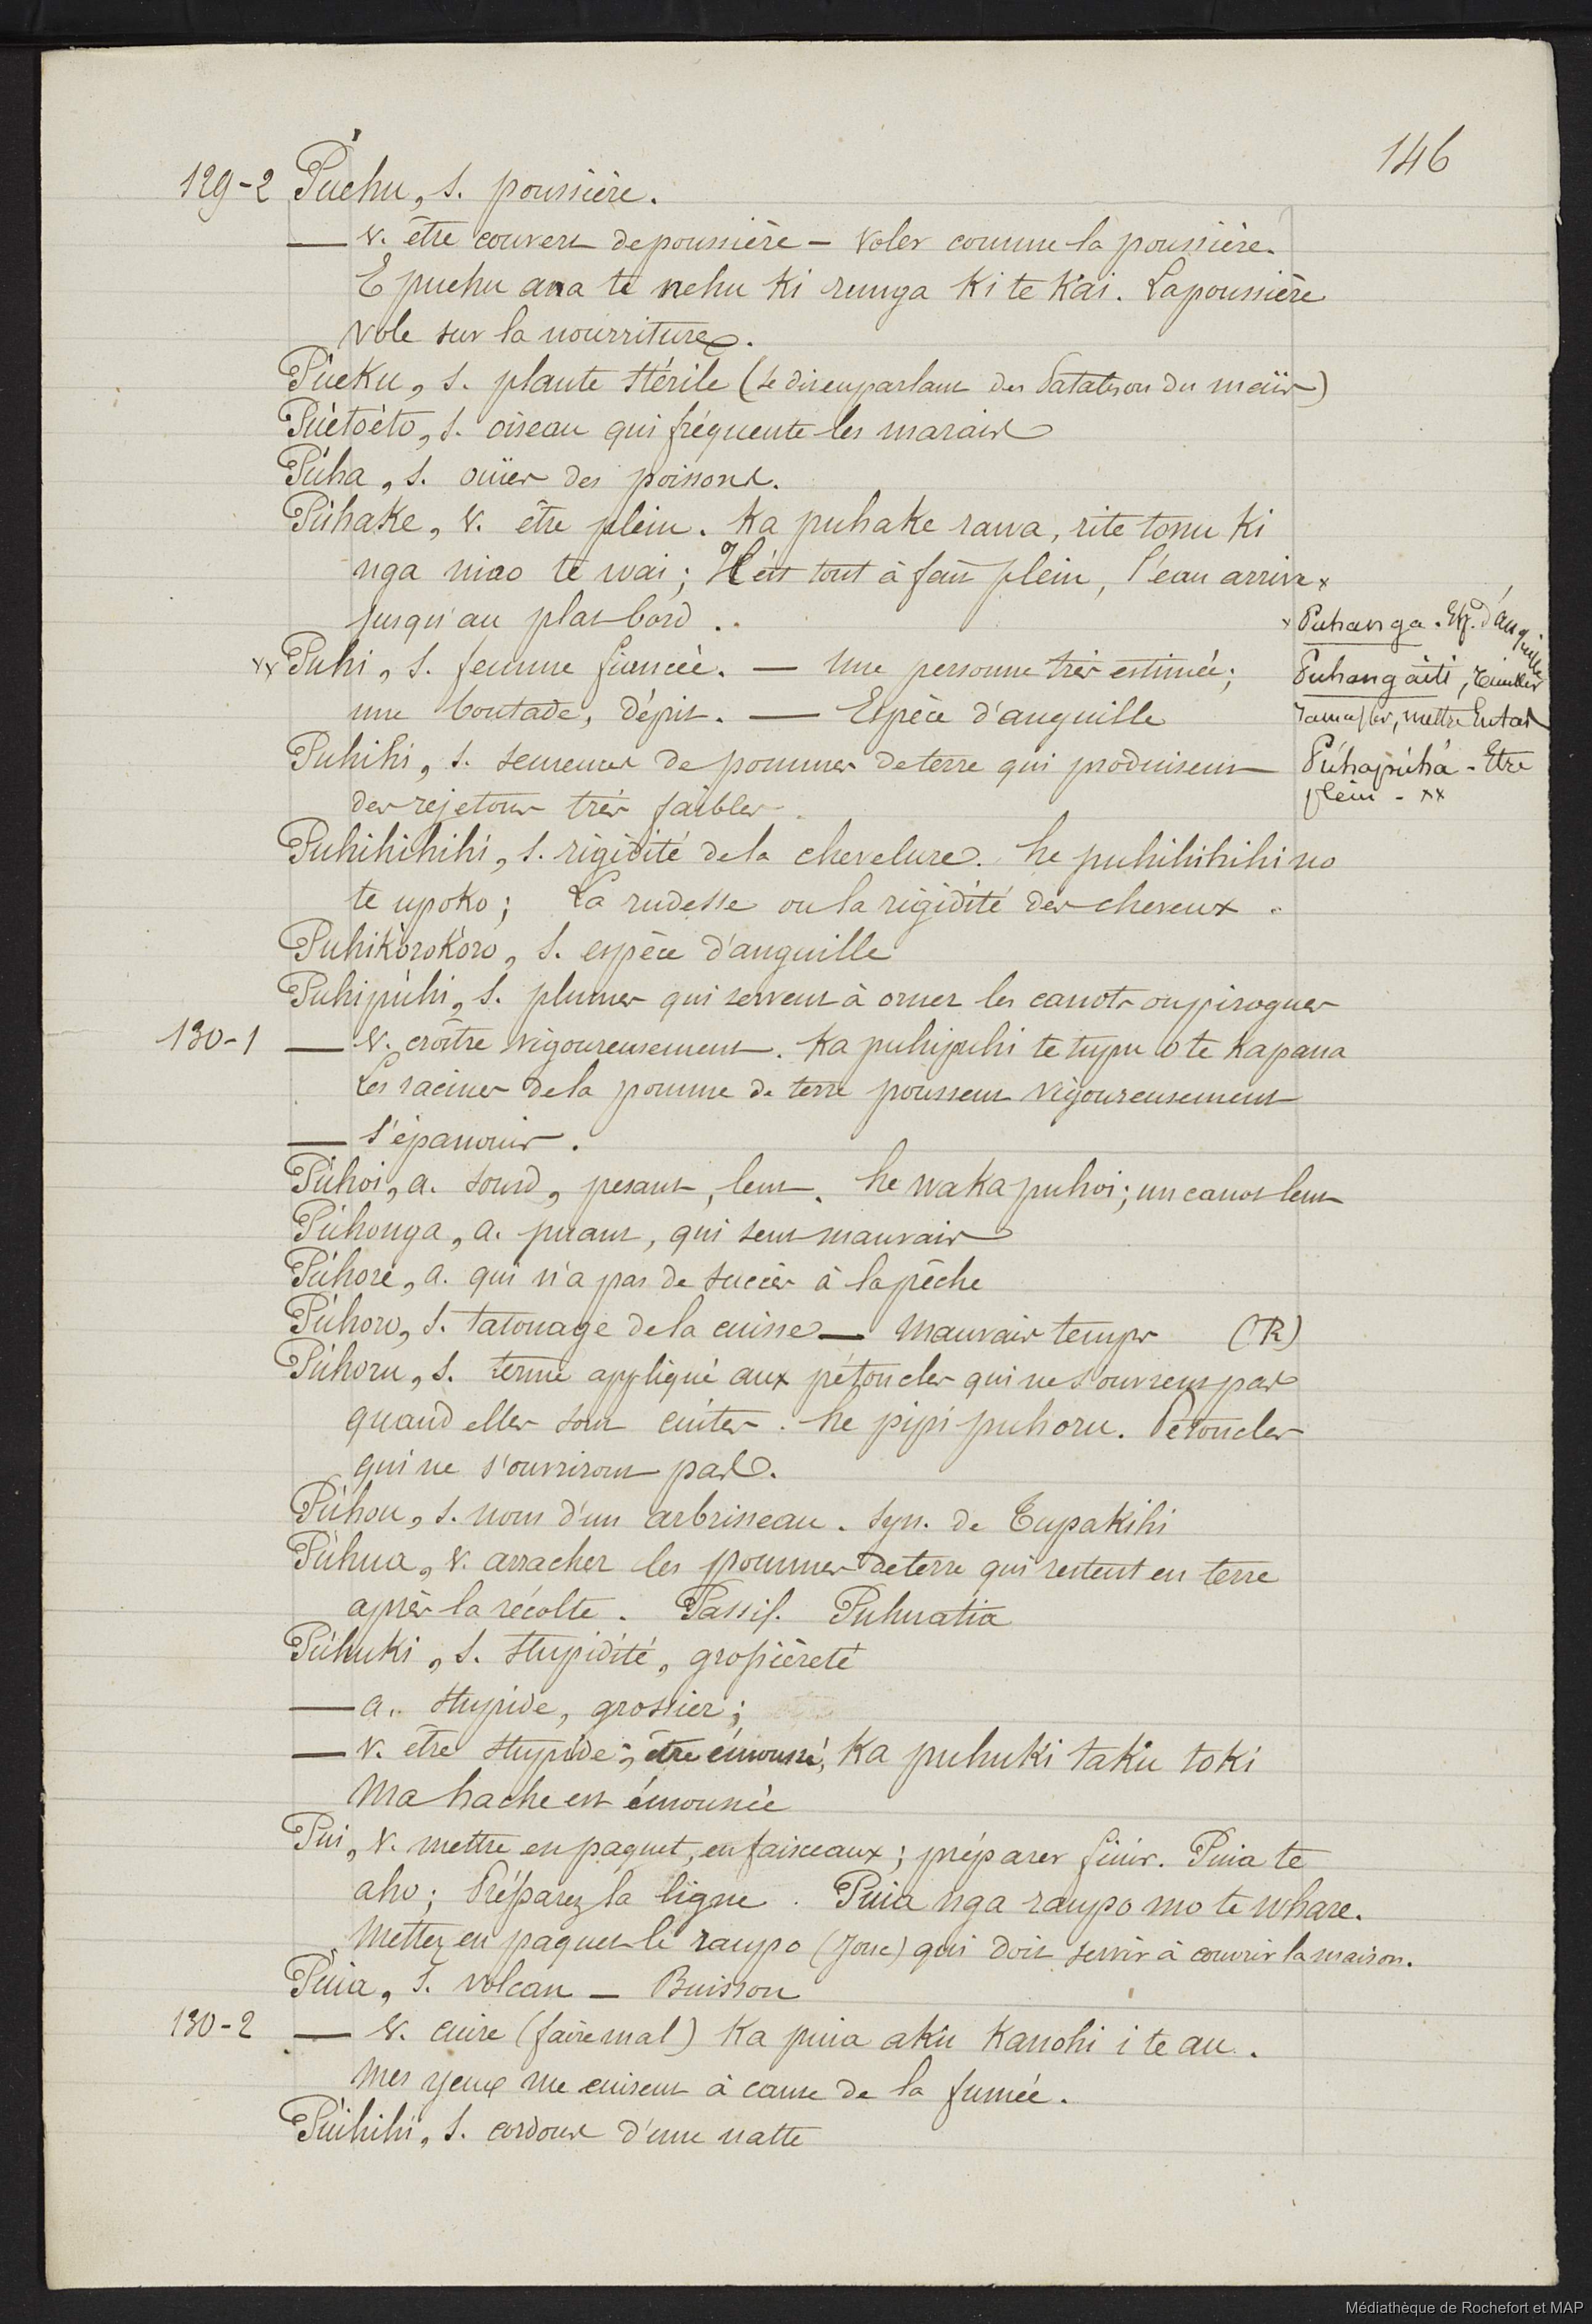 146
129-2 Púehu, s. poussière.
— v. être couvert de poussière — voler comme la poussière.
E puehu ana te nehu ki runga ki te kai. La poussière
vole sur la nourriture.
Púeku, s. plante stérile (se dit en parlant des Patates ou du maïs)
Púètoèto, s. oiseau qui fréquente les marais
Púha, s. ouïes des poissons.
Púhake, v. être plein. Ka puhake rawa, rite tonu ki
nga niao te wai; Il est tout à fait plein, l'eau arrive x
jusqu'au plat bord.
x Puhanga. Esp. d'anguille
xx Puhi, s. femme fiancée. — Une personne très estimée;
Puhangaiti,
une boutade, dépit. — Espèce d'anguille
ramasser, mettre en tas
Puhihi, s. semences de pommes de terre qui produisent
Púhapúha - Etre
des rejetons très faibles.
plein - xx
Puhihihihi, s. rigidité de la chevelure. he puhihihihi no
te upoko; La rudesse ou la rigidité des cheveux.
Puhikòrokòro, s. espèce d'anguille
Puhipúhi, s. plumes qui servent à orner les canots ou pirogues
130-1 — v. croître vigoureusement. Ka puhipuhi te tupu o te kapana
Les racines de la pomme de terre poussent vigoureusement
— s'épanouir.
Púhoi, a. sourd, pesant, lent. he waka puhoi; un canot lent
Púhonga, a. puant, qui sent mauvais
Púhore, a. qui n'a pas de succès à la pêche
Púhoro, s. tatouage de la cuisse — Mauvais temps (R)
Púhoru, s. terme appliqué aux pétoncles qui ne s'ouvrent pas
quand elles sont cuites. he pipi puhoru. Pétoncles
qui ne s'ouvriront pas.
Púhou, s. nom d'un arbrisseau. syn. de Tupakihi
Púhua, v. arracher les pommes de terre qui restent en terre
après la récolte. Passif. Puhuatia
Púhuki, s. stupidité, grossièreté
— a. stupide, grossier;
— v. être stupide; être émoussé, Ka puhuki taku toki
Ma hache est émoussée
Pui, v. mettre en paquet, en faisceaux; préparer finir. Puia te
aho; Préparez la ligne. Puia nga raupo mo te whare.
Mettez en paquet le raupo (Jonc) qui doit servir à couvrir la maison.
Púia, s. volcan — Buisson
130-2 — v. cuire (faire mal) Ka puia aku kanohi i te au.
Mes yeux me cuisent à cause de la fumée.
Púihihi, s. cordons d'une natte
Médiathèque de Rochefort et MAP